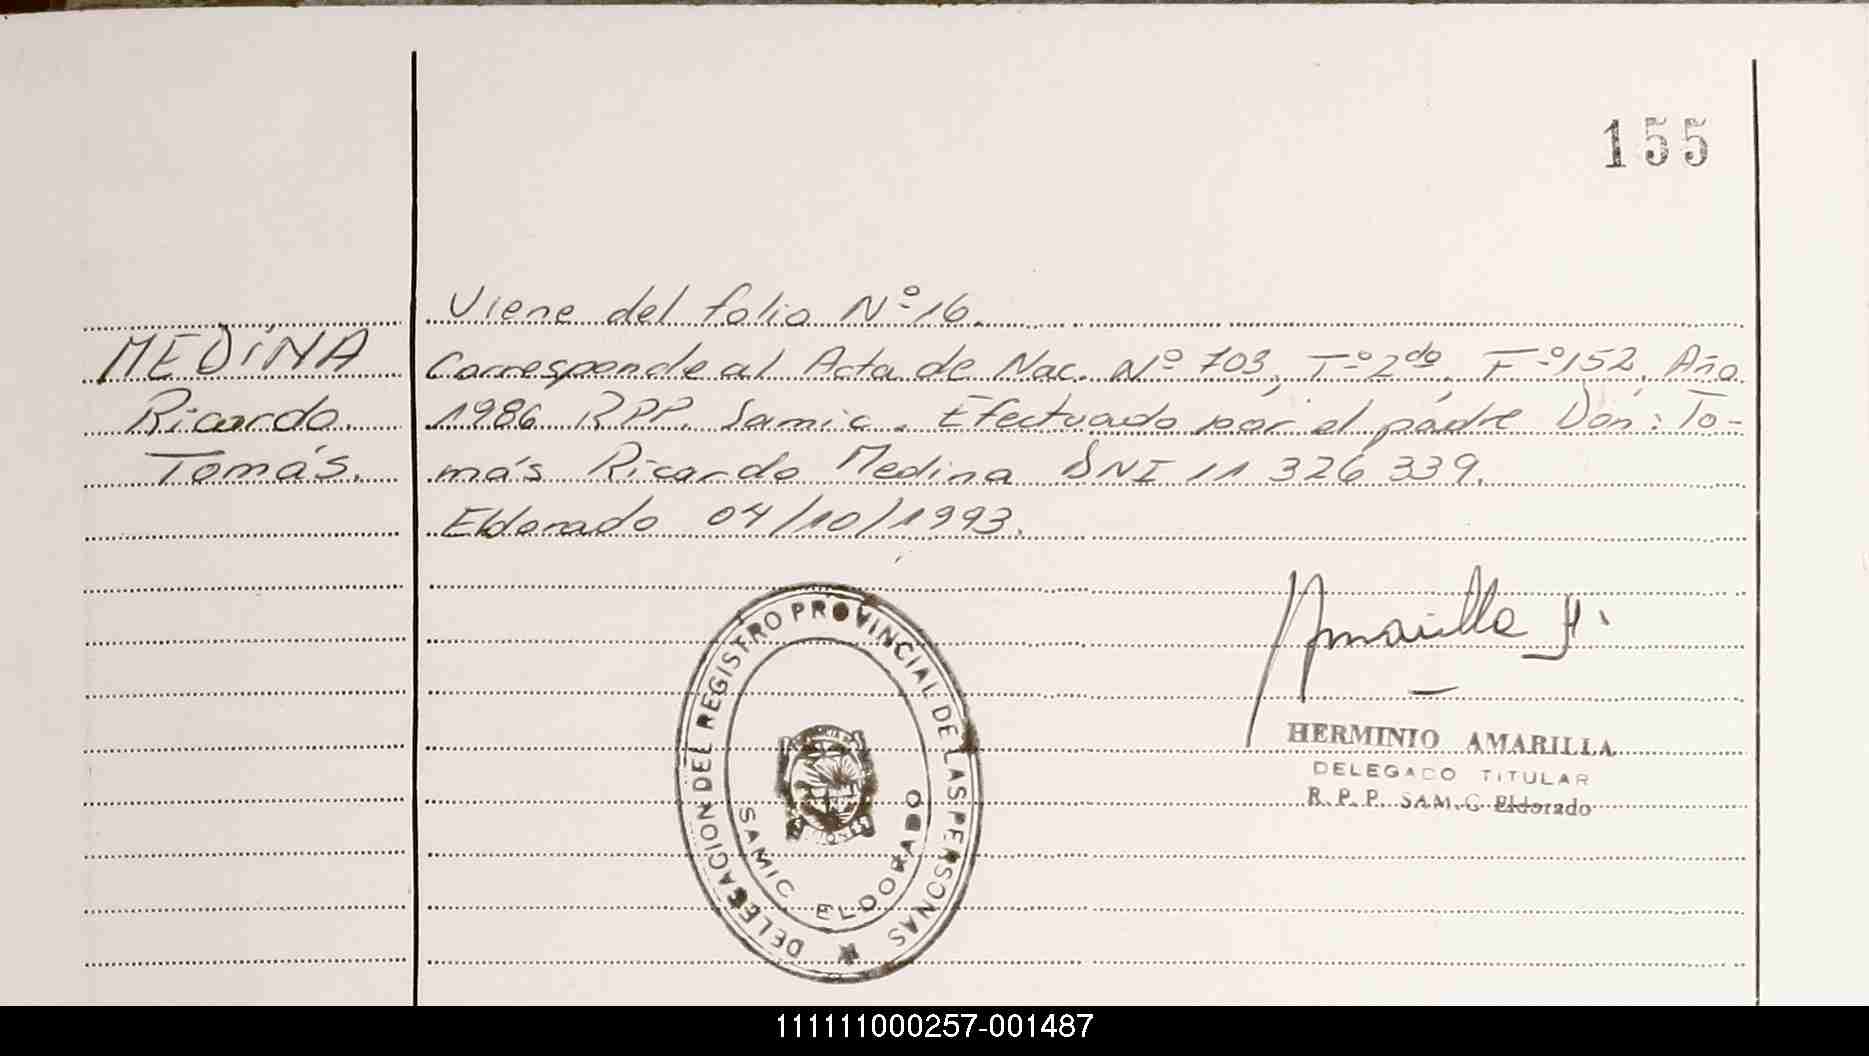 155
Viene del folio Nº 16.
MEDINA
Corresponde al Acta de Nac. Nº 703, Tº 2do, Fº 152, Año
Ricardo.
1986 R.P.P. Samic. Efectuado por el padre Don: To-
Tomás.
más Ricardo Medina DNI 11 326 339.
Eldorado 04/10/1993.
Amarilla H.
HERMINIO AMARILLA
DELEGADO TITULAR
R. P. P. SAM.C Eldorado
DELEGACION DEL REGISTRO PROVINCIAL DE LAS PERSONAS
SAMIC ELDORADO
111111000257-001487